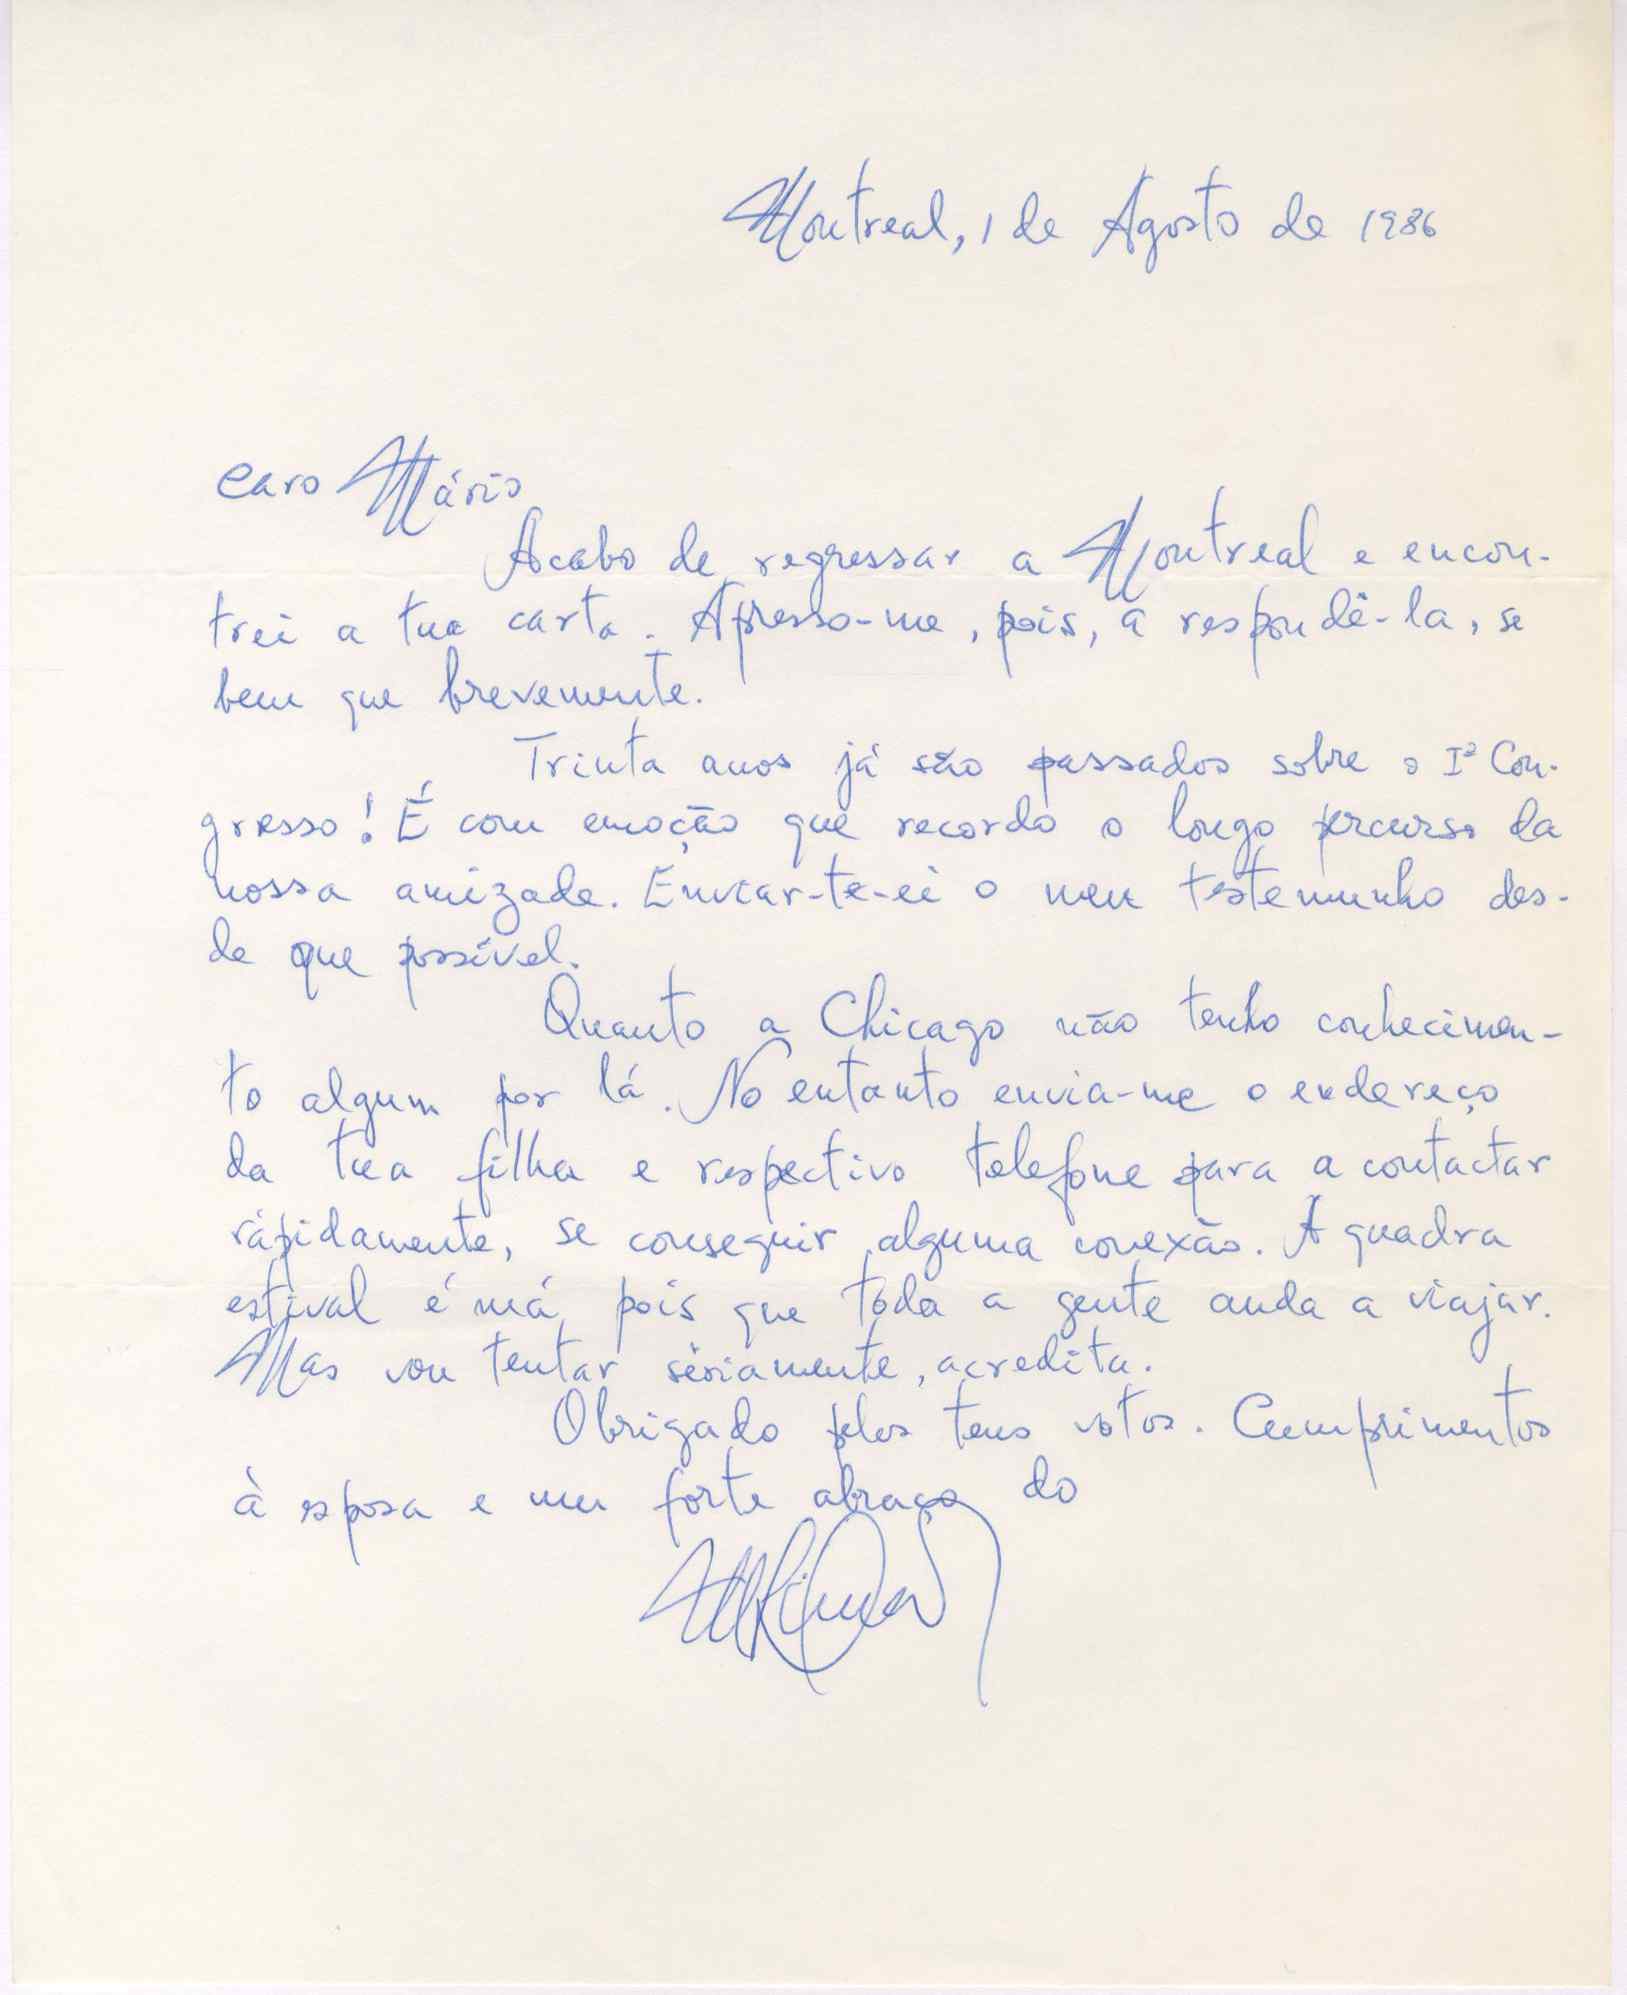 Montreal, 1 de Agosto de 1986
Caro Mário
Acabo de regressar a Montreal e encon-
trei a tua carta. Apresso-me, pois, a respondê-la, se
bem que brevemente.
Trinta anos já são passados sobre o Iº Con-
gresso! É com emoção que recordo o longo percurso da
nossa amizade. Enviar-te-ei o meu testemunho des-
de que possível.
Quanto a Chicago não tenho conhecimen-
to algum por lá. No entanto envia-me o endereço
da tua filha e respectivo telefone para a contactar
rápidamente, se conseguir alguma conexão. A quadra
estival é má pois que toda a gente anda a viajar.
Mas vou tentar sèriamente, acredita.
Obrigado pelos teus votos. Cumprimentos
à esposa e um forte abraço do